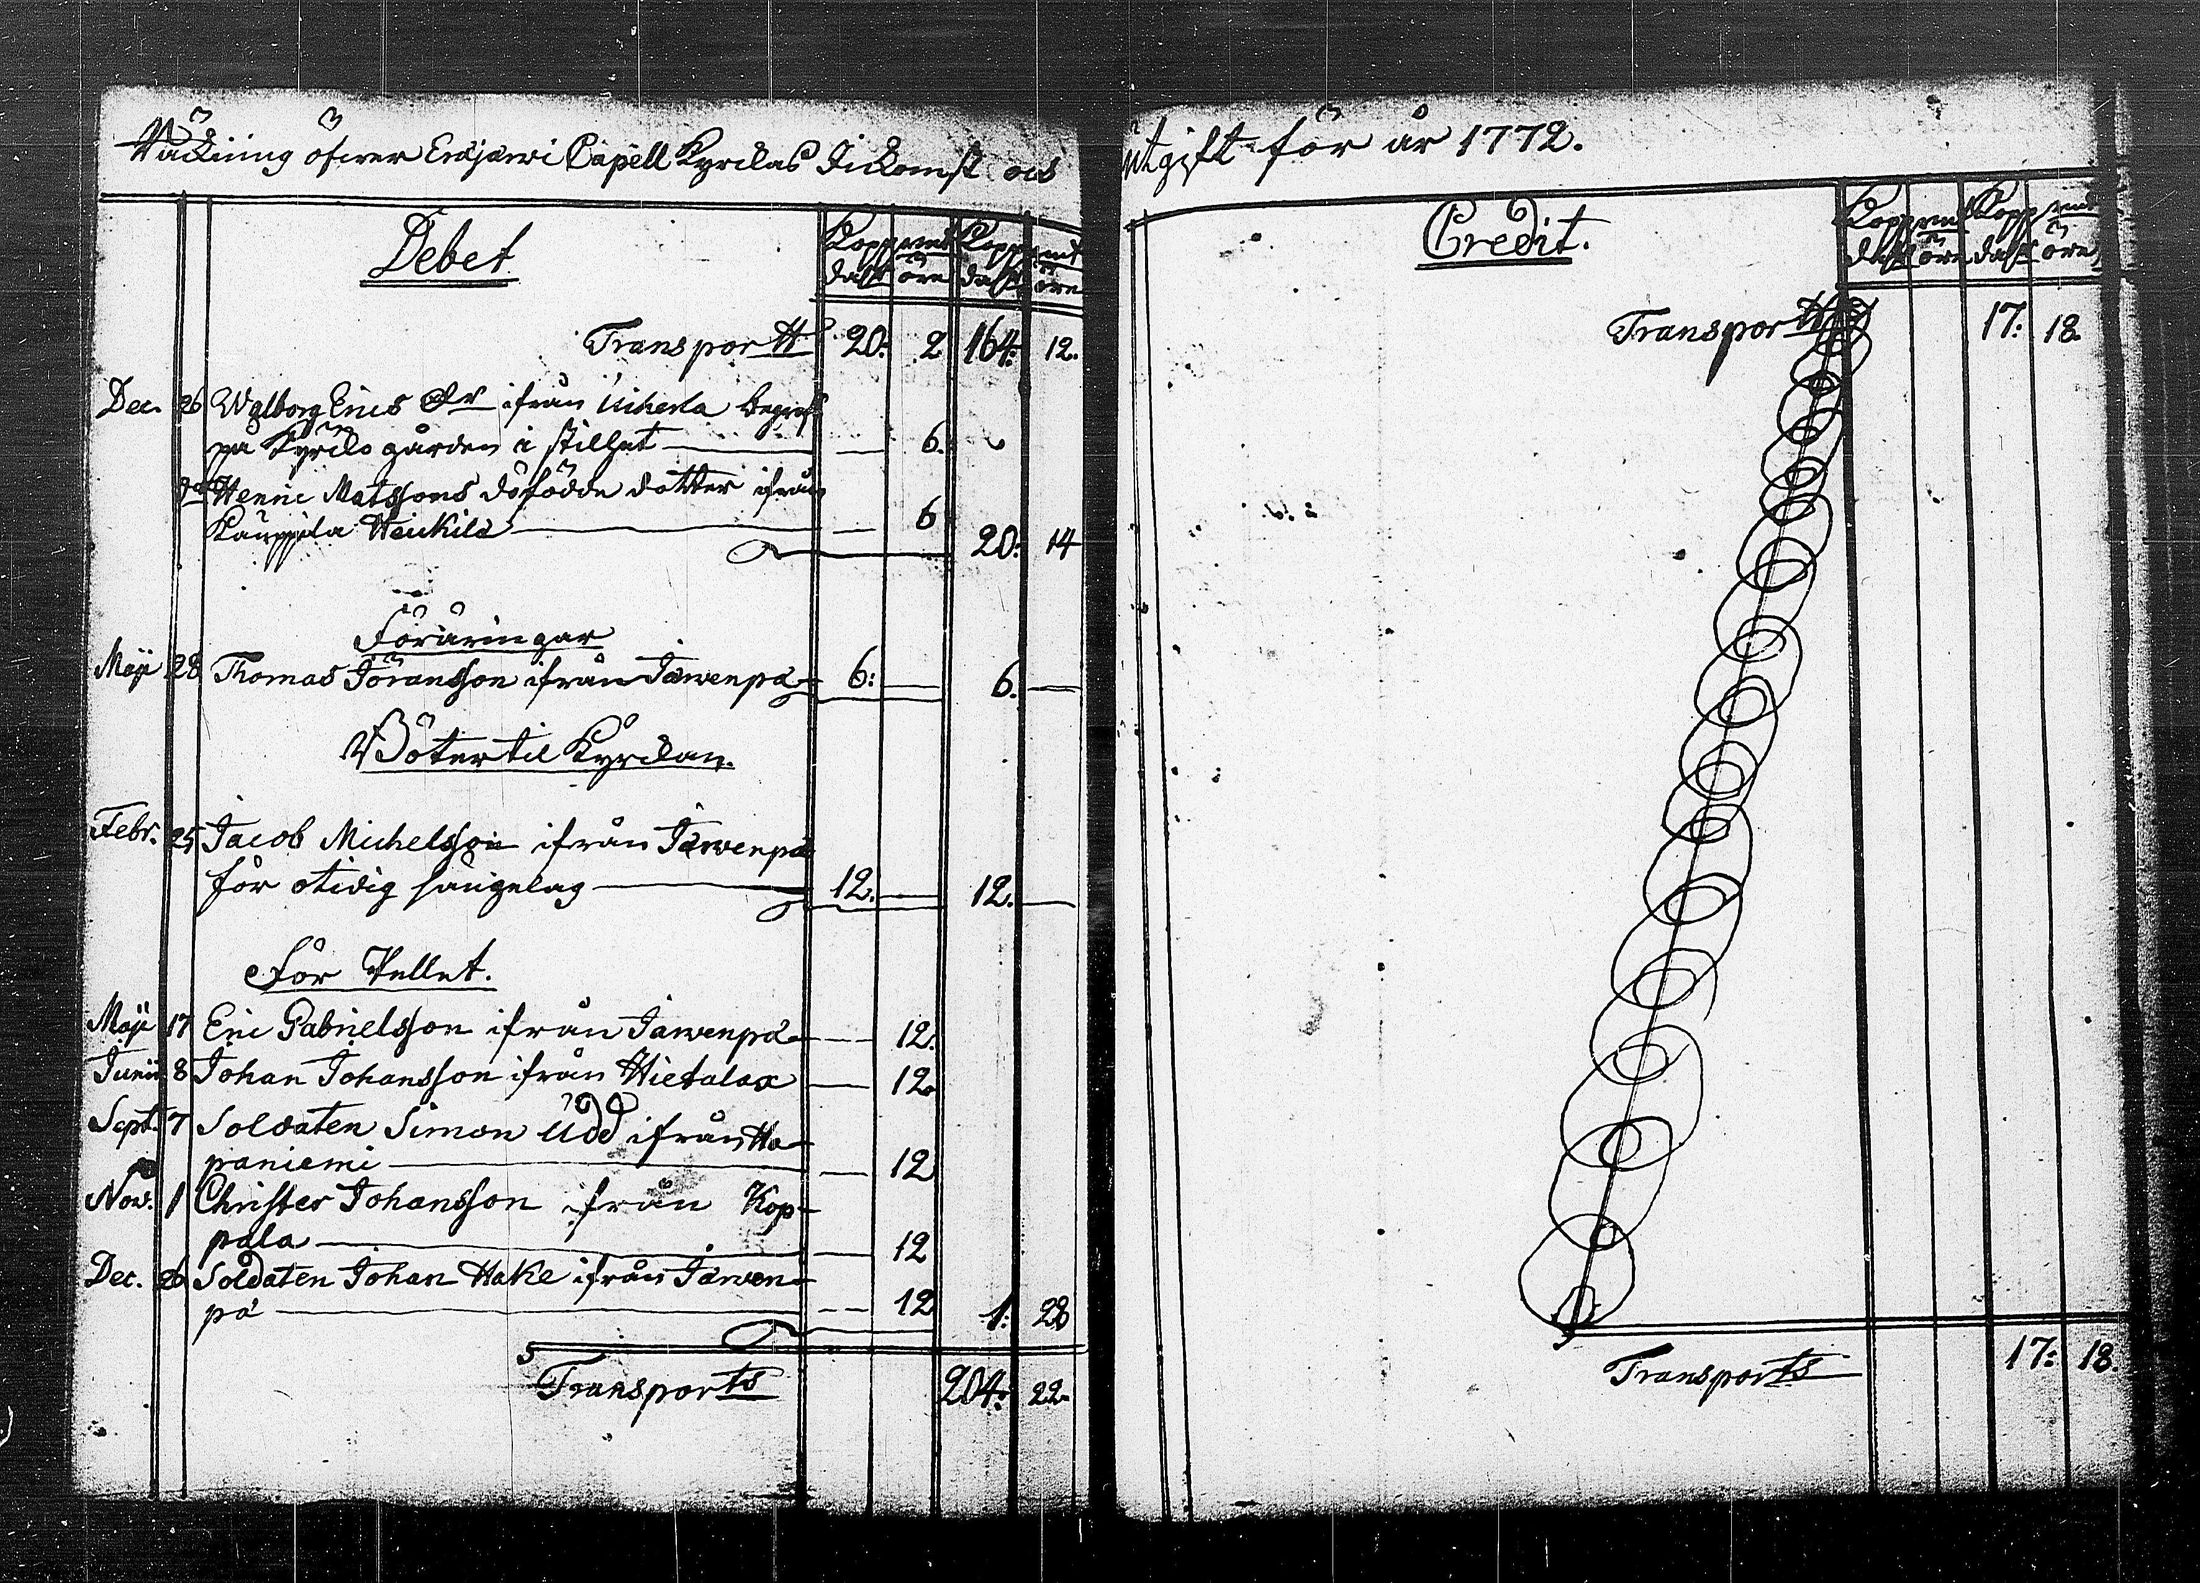 Räkning öfwer Enäjärwi Capell Kyrckas Inkomst och
utgift för år 1772.
Debet
Kopp:mt Kopp:mt
dalr öre dalr öre
Transportt 20: 2 164: 12.
Dec. 26 Walborg Erics Dr ifrån begrafs
på Kyrckogården i stillhet — 6.
do Henric Matssons dödfödde dotter ifrån
Kauppila Heickilä — 6
20: 14
Föräringar
Maji 28 Thomas Jöransson ifrån Järwenpä 6: — 6. —
Böter til Kyrckan.
Febr. 25 Jacob Michelsson ifrån Järwenpä
för otidig sängelag — 12. — 12. —
För Pellet.
Maji 17 Eric Gabrielsson ifrån Järwenpä — 12.
Junii 8 Johan Johansson ifrån Hietalax — 12.
Sept. 7 Soldaten Simon Udd ifrån Ha-
paniemi — 12
Nov. 1 Christer Johansson ifrån Kop-
pala — 12
Dec. 26 Soldaten Johan Hake ifrån Järwen-
pä — 12 1: 28
Transports 204: 22.
Credit.
Kopp:mt Kopp:mt
dalr öre dalr öre
Transportt 17: 18.
Transports 17: 18.